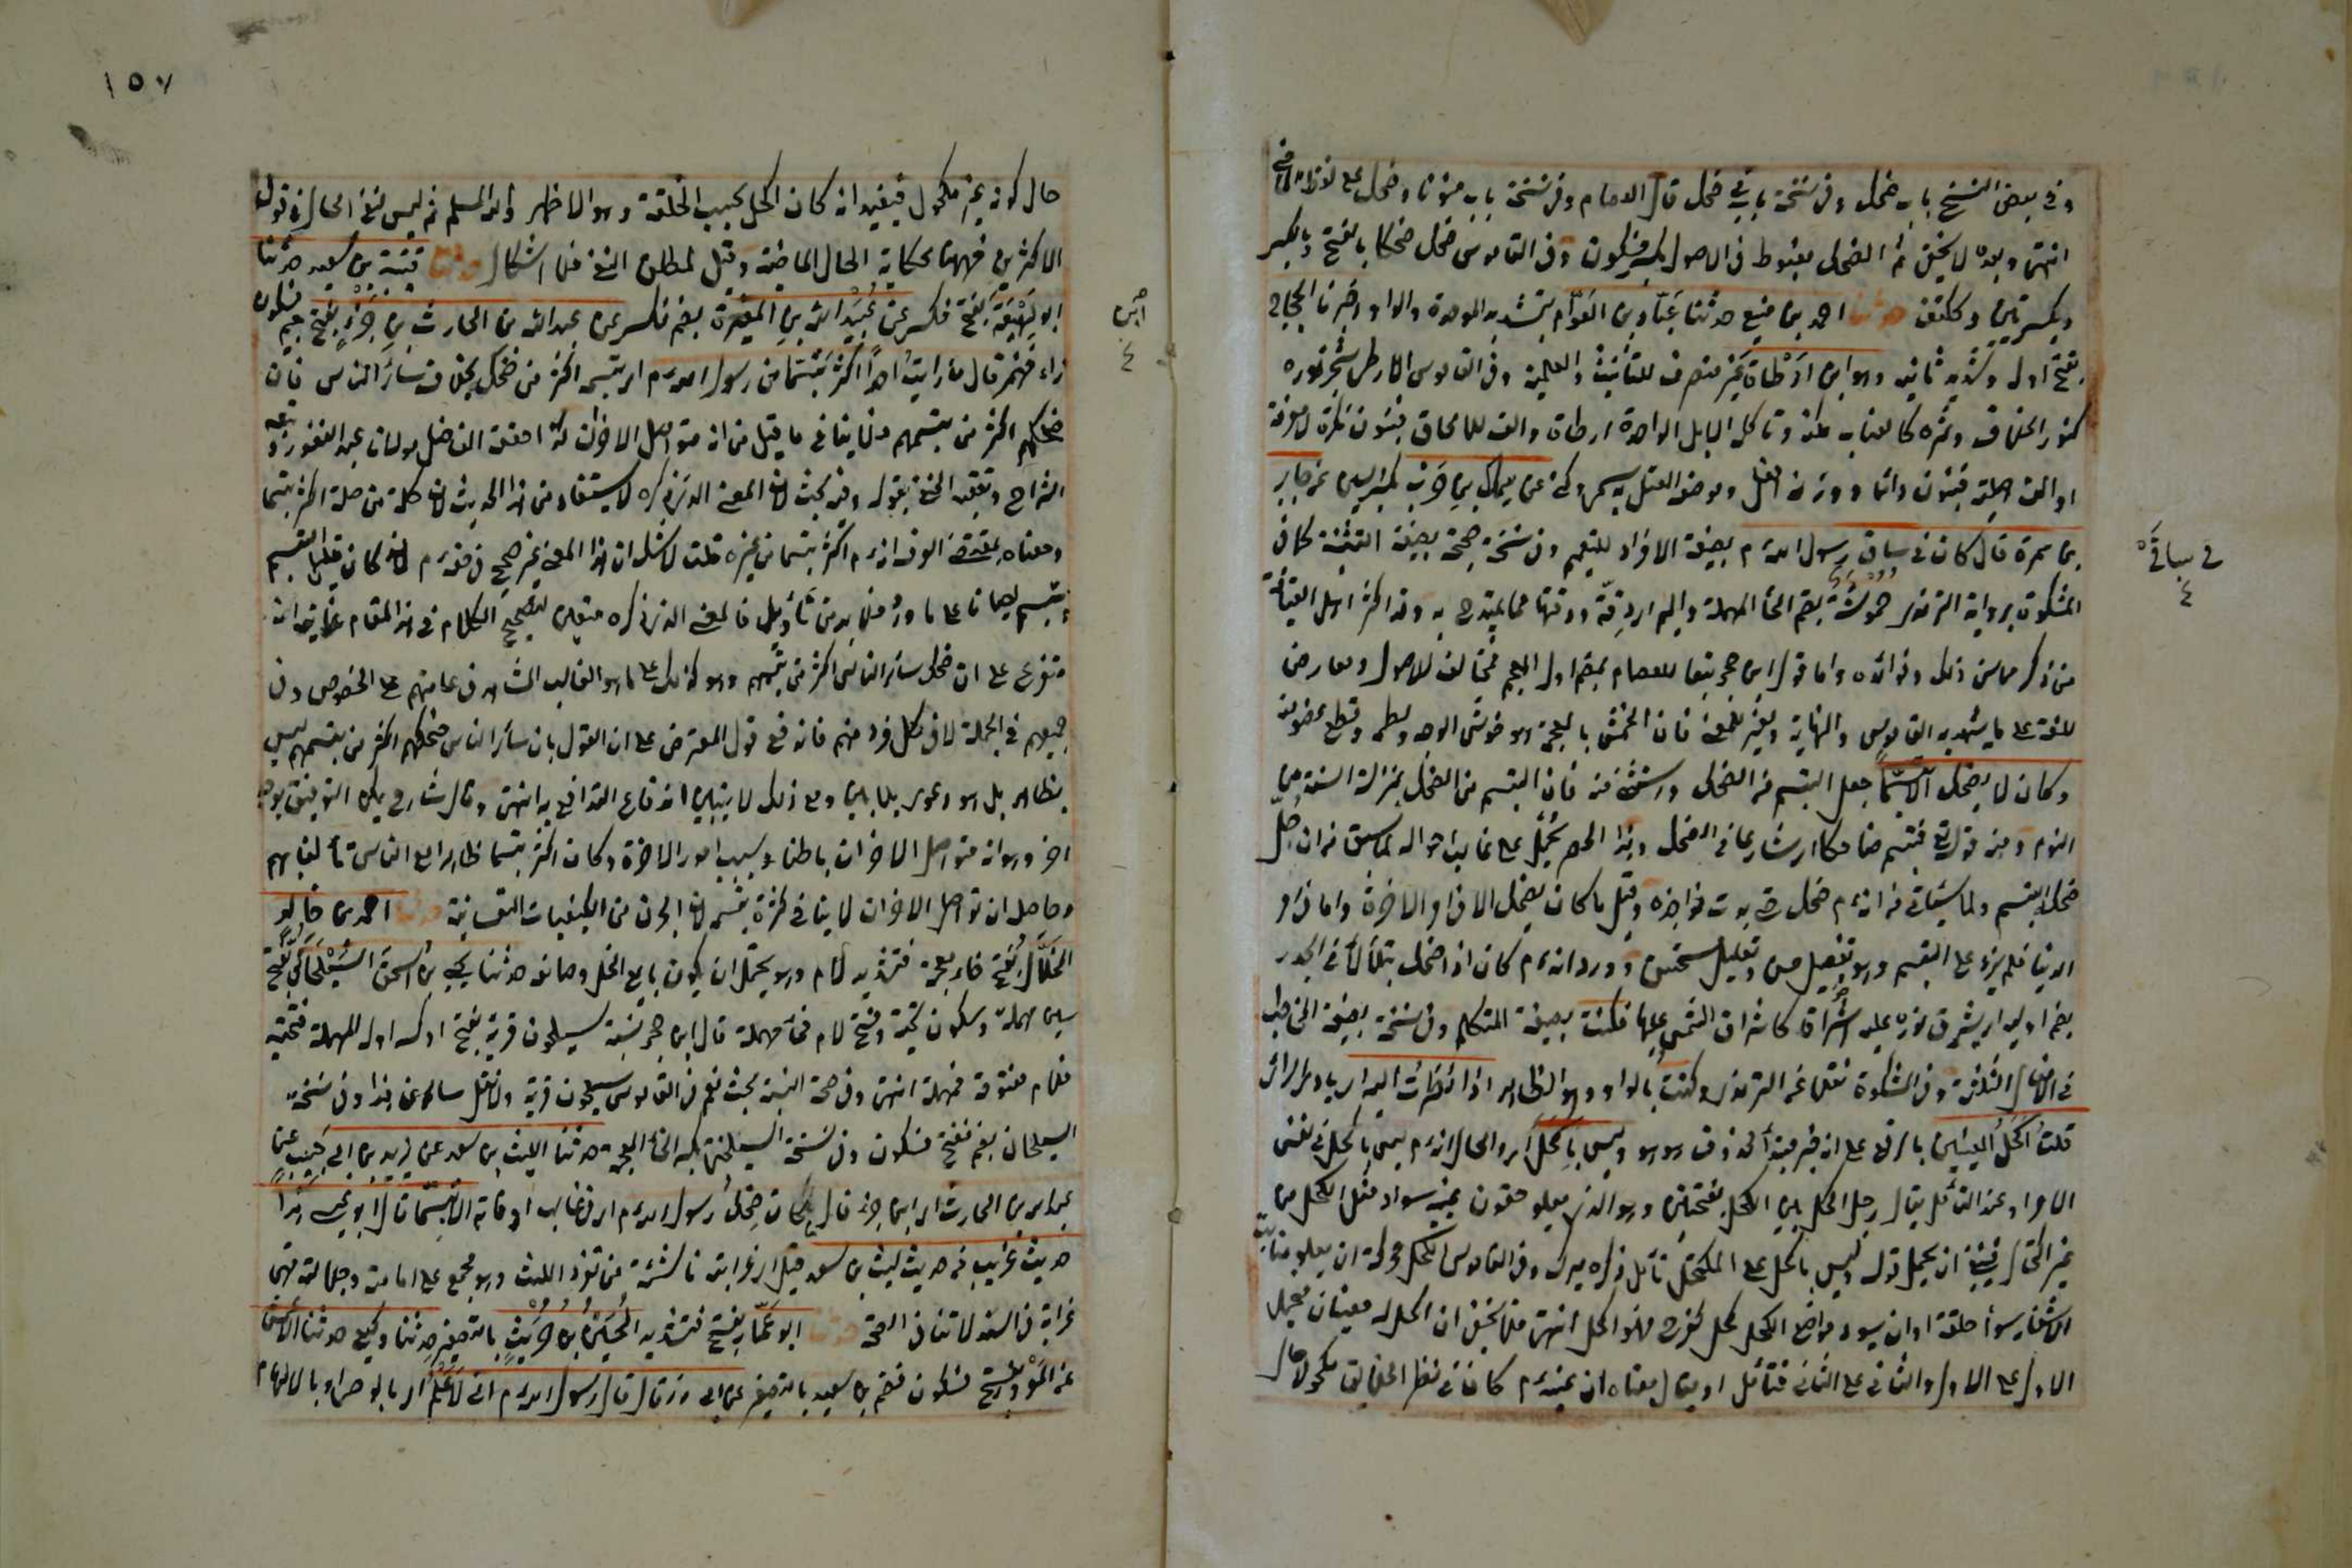 وفي بعض النسخ باب ضحك وفي نسخة باب في ضحك قال العصام وفي نسخة باب منونا وضحك على لفظ الماضي
انتهى وبعده لا يخفى ثم الضحك مضبوط في الاصول بكسر فسكون وفي القاموس ضحك ضحكا بالفتح وبالكسر
وبكسرتين وككتف حدثنا احمد بن منيع حدثنا عَبّاد بن العَوّام بتشديد الموحدة والواو اخبرنا الحجاج
بفتح اوله وتشديد ثانيه وهو ابن اَرْطاة غير منصرف للتأنيث والعلمية وفي القاموس الارطى شجر نوره
كنور الخلاف وثمره كالعناب مرة وتاكله الابل الواحدة ارطاة والفه للالحاق فينون نكرة لا معرفة
او الفه اصلية فينون دائما ووزنه افعل وموضعه المعتل وبه سمى وكنى عن سماك بن حَرْب بكسر السين عن جابر
بن سمرة قال كان في ساق رسول الله م بصيغة الافراد للتعميم وفي نسخة صحيحة بصيغة التثنية كما في
المشكوة برواية الترمذي حموشة بضم الحاء المهملة والميم اي دقة ودقتها مما يمتدح به وقد اكثر اهل القيافة
من ذكر محاسن ذلك وفوائده واما قول ابن حجر تبعا للعصام بضم اول المعجم فمخالف للاصول ومعارض
للغة على ما يشهد به القاموس والنهاية ويغير المعنى فان الخمش بالمعجمة هو خوش الوجه ولطمه وقطع عضو منه
وكان لا يضحك الا تبسما جعل التبسم من الضحك واستثنى منه فان التبسم من الضحك بمنزلة السنة من
النوم ومنه قوله تعالى فتبسم ضاحكا اي شارعا في الضحك وهذا الحصر يحمل على غالب احواله لما سبق من ان جل
ضحكه التبسم ولما سيأتي من انه م ضحك حتى بدت نواجذه وقيل ما كان يضحك الا في امر الاخرة واما في امر
الدنيا فلم يزد على التبسم وهو تفصيل حسن وتعليل مستحسن وورد انه م كان اذا ضحك يتلألأ في الجدر
بضم اوليه اي يشرق نوره عليها اشراقا كاشراق الشمس عليها فكنت بصيغة المتكلم وفي نسخة بصيغة المخاطب
في الافعال الثلثة وفي المشكوة نقلا عن الترمذي وكنت بالواو وهو الظاهر اذا نظرت اليه اي بادى الرأى
قلت اكحل العينين بالرفع على انه خبر مبتدأ محذوف هو هو وليس باكحل اي والحال انه م ليس باكحل في نفس
الامر او عند التأمل يقال رجل اكحل بين الكحل بفتحتين وهو الذي يعلو جفون عينيه سواد مثل الكحل من
غير اكتحال فينبغي ان يحمل قوله وليس باكحل على المكتحل تأمل ذكره ميرك وفي القاموس الكحل محركة ان يعلو منابت
الاشفار سواد خلقة او ان يسود مواضع الكحل كحل كفرح فهو اكحل انتهى فلا يخفى ان اكحل له معنيان فيحمل
الاول على الاول والثاني على الثاني فتأمل او يقال معناه ان عينيه م كان في نظر الخلايق مكحولا حال
في ساقَيْ
٤
١٥٧
حال كونه غير مكحول فيفيد انه كان اكحل بحسب الخلقة وهو الاظهر والله المسلم ثم ليس لنفي الحال في قول
الاكثرين فههنا لحكاية الحال الماضية وقيل لمطلق النفي فلا اشكال حدثنا قتيبة بن سعيد حدثنا
ابن لَهِيْعَة بفتح فكسر عن عُبَيْد الله بن المغيرة بضم فكسر عن عبد الله بن الحارث بن جَزْء بفتح جيم فسكون
زاء فهمز قال ما رايت احدا اكثر تبسما من رسول الله م اي تبسمه اكثر من ضحكه بخلاف سائر الناس فان
ضحكهم اكثر من تبسمهم فلا ينافي ما قيل من انه متواصل الاحزان كذا حققه الفاضل مولانا عبد الغفور وتبعه
الشراح وتعقبه الحنفي بقوله وفيه بحث لان المعنى الذي ذكره لا يستفاد من هذا الحديث لان كلمة من صلة اكثر تبسما
ومعناه بمقتضى العرف انه م اكثر تبسما من غيره قلت لا شك ان هذا المعنى غير صحيح في حقه م لانه كان قليل التبسم
يتبسم احيانا على ما ورد فلا بد من تأويل فالمعنى الذي ذكره متعين لتصحيح الكلام في هذا المقام غايته انه
متفرع على ان ضحك سائر الناس اكثر من تبسمهم وهو كذلك على ما هو الغالب المشاهد في عامتهم على الخصوص وفي
جميعهم في الجملة لا في كل فرد منهم فاندفع قول المعترض على ان القول بان سائر الناس ضحكهم اكثر من تبسمهم ليس
بظاهر بل هو دعوى بلا بيان ومع ذلك لا يتبين اندفاع التدافع به انتهى وقال شارح يمكن التوفيق بوجه
اخر وهو انه متواصل الاحزان باطنا بسبب امور الاخرة وكان اكثر تبسما ظاهرا مع الناس تألفا بهم
وحاصله ان تواصل الاحزان لا ينافي كثرة تبسمه لان الحزن من الكيفيات النفسانية حدثنا احمد بن خالد
الخلال بفتح خاء معجمة فتشديد لام وهو يحتمل ان يكون بايع الخل وصانعه حدثنا يحيى بن اسحق السيلحاني بفتح
سين مهملة وسكون تحتية وفتح لام فحاء مهملة قال ابن حجر نسبة لسيلحون قرية بفتح اوله اوله المهملة فتحتية
فلام مفتوحة فمهملة انتهى وفي صحة النسبة بحث نعم في القاموس سيلحون قرية ولا تقل سالحون هذا وفي نسخة
السيلحان بضم ففتح فسكون وفي نسخة السيلخني بكسر الخاء المعجمة حدثنا الليث بن سعد عن يزيد بن ابي حبيب عن
عبد الله بن الحارث اي ابن جزء قال ما كان ضحك رسول الله م اي في غالب اوقاته الا تبسما قال ابو عيسى هذا
حديث غريب من حديث ليث بن سعد قيل اي غرابته ناشئة من تفرد الليث وهو مجمع على امامته وجلالته فهي
غرابة في السند لا تنافي الصحة حدثنا ابو عَمّار بفتح فتشديد الحسين بن حُرَيْث بالتصغير حدثنا وكيع حدثنا الاعمش
عن المعرور بفتح فسكون فضم بن سويد بالتصغير عن ابي ذر قال قال رسول الله م اني لاعلم اي بالوحي او بالالهام